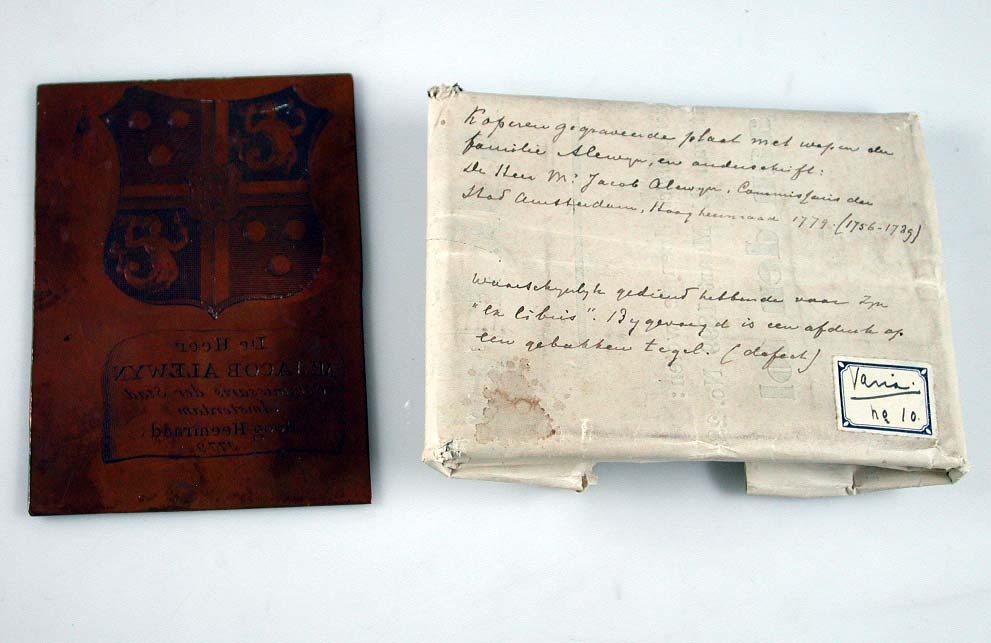 De Heer
Mr. JACOB ALEWYN
Commissaris der Stad
Amsterdam
Hoog Heemraad
1779
Koperen gegraveerde plaat met wapen der
familie Alewyn, en onderschrift:
De Heer Mr. Jacob Alewyn, Commissaris der
Stad Amsterdam, Hoog heemraad 1779. (1756-1789)
Waarschynlyk gediend hebbende voor zyn
"ex libris". Bygevoegd is een afdruk op
een gebakken tegel. (defect)
Varia.
no 10.